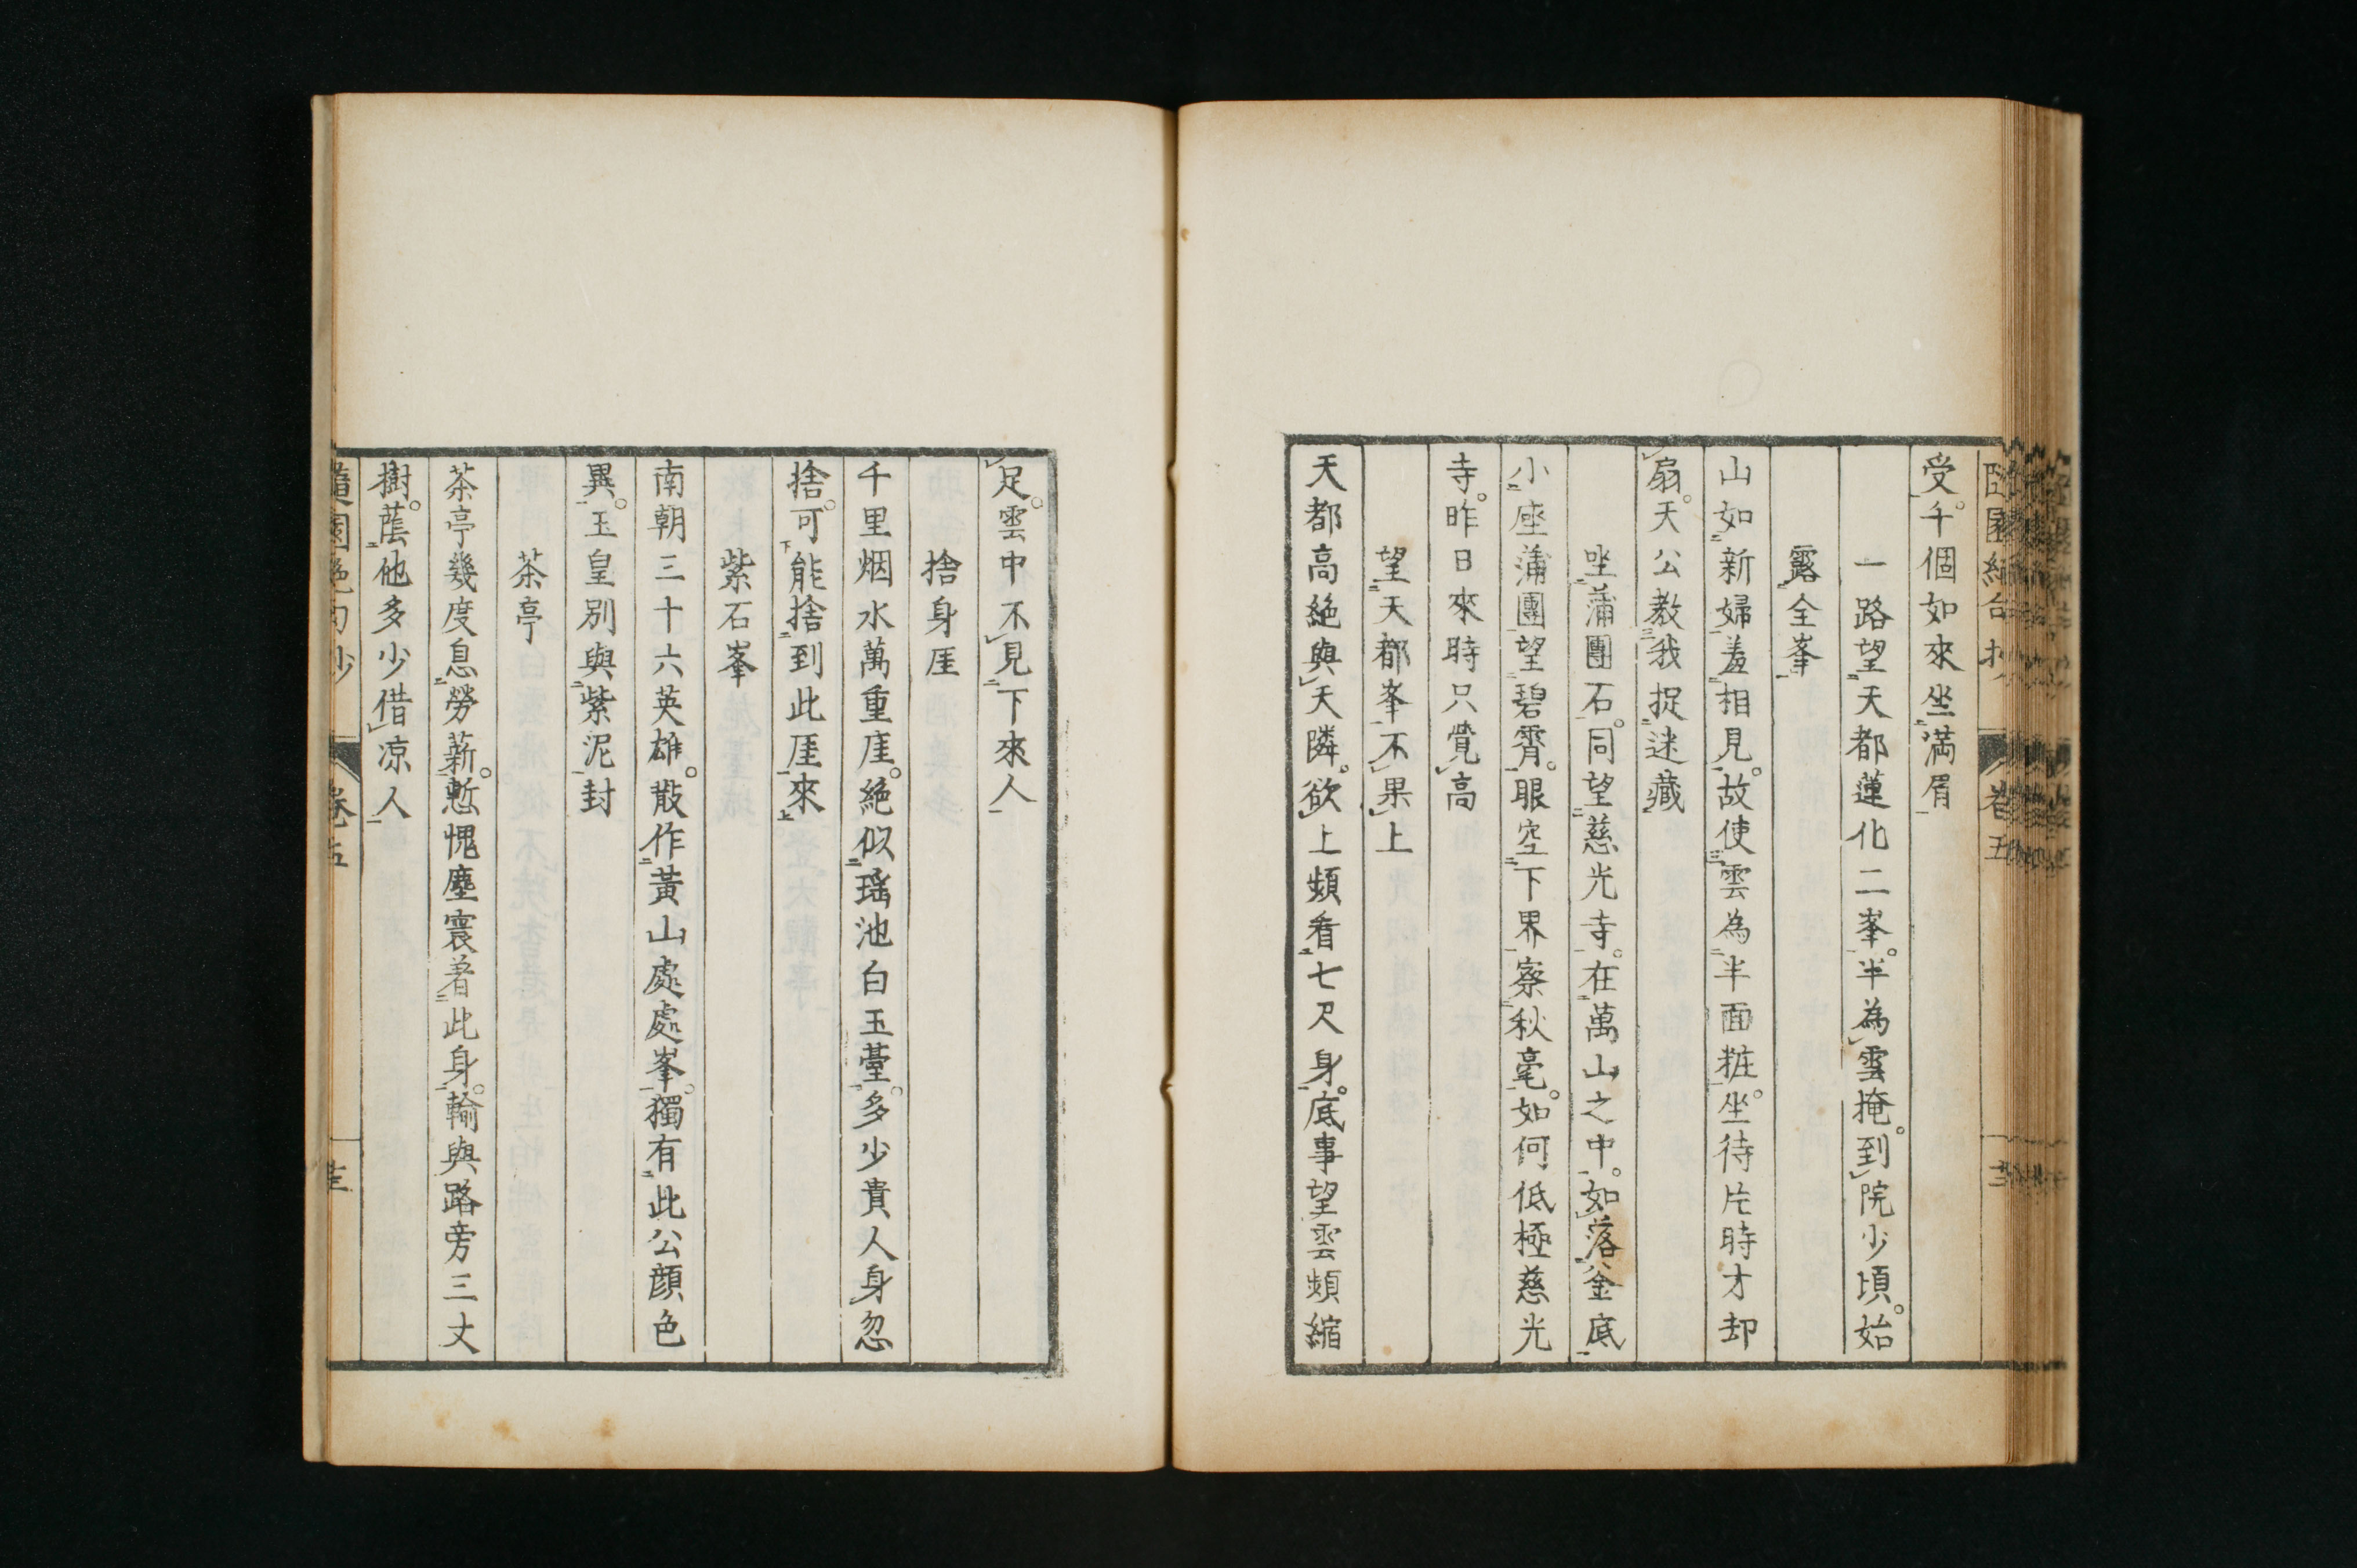 卷五
受千個如來坐満眉
一路望天都蓮化二峯。半為雲掩。到院少頃。始
露全峯
山如新婦羞相見。故使雲為半面粧。坐待片時才却
扇。天公教我捉迷藏
坐蒲團石。同望慈光寺。在萬山之中。如落釜底
小座蒲團望碧霄。眼空下界察秋毫。如何低極慈光
寺。昨日來時只覺高
望天都峯不果上
天都高絶與天隣。欲上頻看七尺身。底事望雲頻縮
足。雲中不見下來人
捨身厓
千里烟水萬重厓。絶似瑤池白玉臺。多少貴人身忽
捨。可能捨到此厓來
紫石峯
南朝三十六英雄。散作黃山處處峯。獨有此公顔色
異。玉皇別與紫泥封
茶亭
茶亭幾度息勞薪。慙愧塵寰着此身。輸與路旁三丈
樹。䕃他多少借凉人
隨園絶句抄 卷五